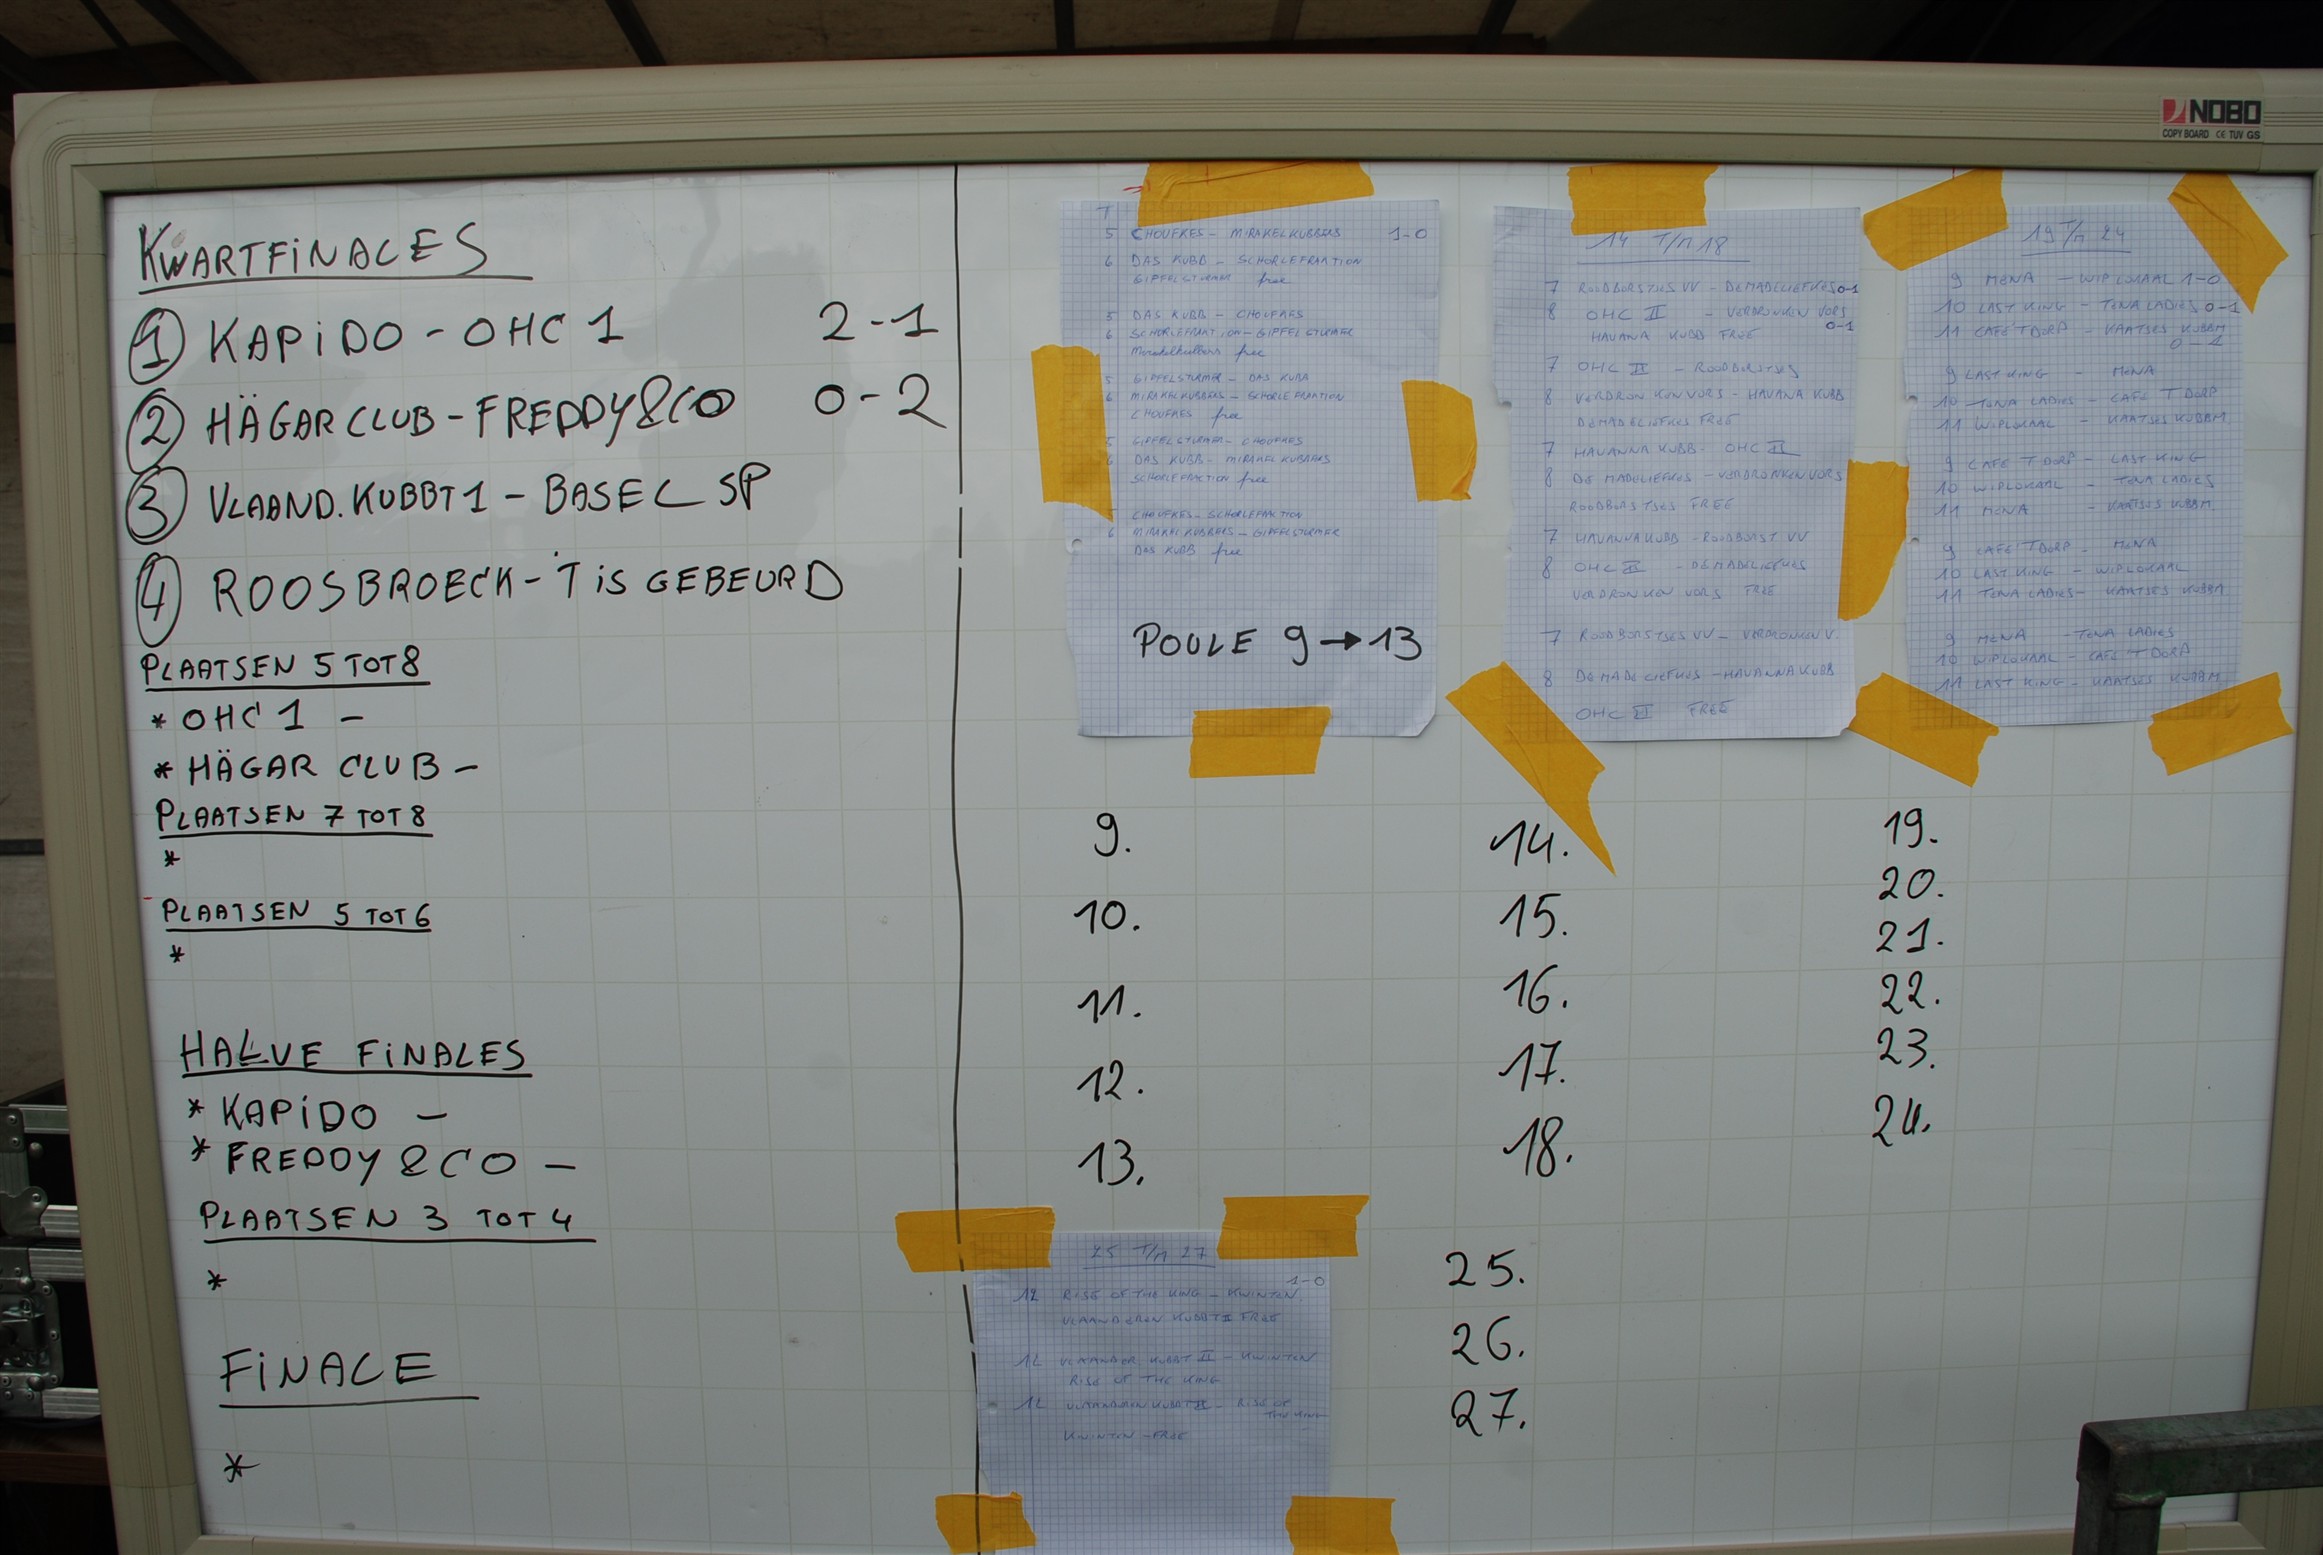 NOBO
COPY BOARD CE TUV GS
KWARTFINALES
1 KAPIDO - OHC 1 2-1
2 HÄGAR CLUB - FREDDY&CO 0-2
3 VLAAND. KUBBT 1 - BASEL SP
4 ROOSBROECK - T IS GEBEURD
PLAATSEN 5 TOT 8
* OHC 1 -
* HÄGAR CLUB -
PLAATSEN 7 TOT 8
*
PLAATSEN 5 TOT 6
*
HALVE FINALES
* KAPIDO -
* FREDDY & CO -
PLAATSEN 3 TOT 4
*
FINALE
*
T
5 CHOUFKES - MIRAKELKUBBERS 1-0
6 DAS KUBB - SCHORLEFRAKTION
GIPFELSTURMER free
5 DAS KUBB - CHOUFKES
6 SCHORLEFRAKTION - GIPFELSTURMER
Mirakelkubbers free
5 GIPFELSTURMER - DAS KUBB
6 MIRAKELKUBBERS - SCHORLEFRAKTION
CHOUFKES free
5 GIPFELSTURMER - CHOUFKES
6 DAS KUBB - MIRAKELKUBBERS
SCHORLEFRACTION free
5 CHOUFKES - SCHORLEFRAKTION
6 MIRAKELKUBBERS - GIPFELSTURMER
DAS KUBB free
POULE 9 → 13
14 T/M 18
7 ROODBORSTJES VV - DEMADELIEFKES 0-1
8 OHC II - VERDRONKEN VORS
0-1
HAVANA KUBB FREE
7 OHC II - ROODBORSTJES
8 VERDRONKEN VORS - HAVANA KUBB
DEMADELIEFKES FREE
7 HAVANNA KUBB - OHC II
8 DE MADELIEFKES - VERDRONKEN VORS
ROODBORSTJES FREE
7 HAVANNA KUBB - ROODBORST VV
8 OHC II - DEMADELIEFKES
VERDRONKEN VORS FREE
7 ROODBORSTJES VV - VERDRONKEN V.
8 DEMADELIEFKES - HAVANNA KUBB
OHC II FREE
19 T/M 24
9 MENA - WIPLOKAAL 1-0
10 LAST KING - TENA LADIES 0-1
11 CAFE T DORP - KAATSES KUBBM
0-1
9 LAST KING - MENA
10 TENA LADIES - CAFE T DORP
11 WIPLOKAAL - KAATSES KUBBM
9 CAFE T DORP - LAST KING
10 WIPLOKAAL - TENA LADIES
11 MENA - KAATSES KUBBM
9 CAFE T DORP - MENA
10 LAST KING - WIPLOKAAL
11 TENA LADIES - KAATSES KUBBM
9 MENA - TENA LADIES
10 WIPLOKAAL - CAFE T DORP
11 LAST KING - KAATSES KUBBM
9.
10.
11.
12.
13.
14.
15.
16.
17.
18.
19.
20.
21.
22.
23.
24.
25 T/M 27
1-0
12 RISE OF THE KING - KWINTEN
VLAANDEREN KUBBT II FREE
12 VLAANDER KUBBT II - KWINTEN
RISE OF THE KING
12 VLAANDEREN KUBBT II - RISE OF
THE KING
KWINTEN - FREE
25.
26.
27.